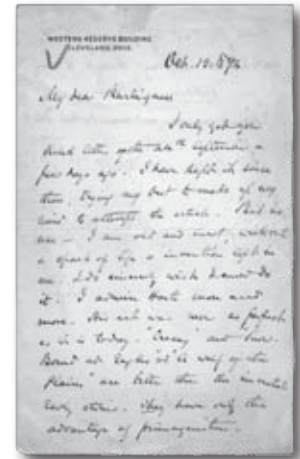 WESTERN RESERVE BUILDING
CLEVELAND, OHIO
Oct. 10,
My dear
I only got your
kind letter of the September a
few days ago. I have kept it since
then, trying my best to make up my
mind to attempt the article. But no
use – I am old and inert, without
a spark of life or invention left in
me. I do sincerely wish I could do
it. I admire Harte more and
more. His art was never so perfect
as it is today. "Cressy" and Snow-
Bound at Eagle's "a waif of the
Plains" are better than the immortal
early stories. They have only the
advantage of primogeniture.